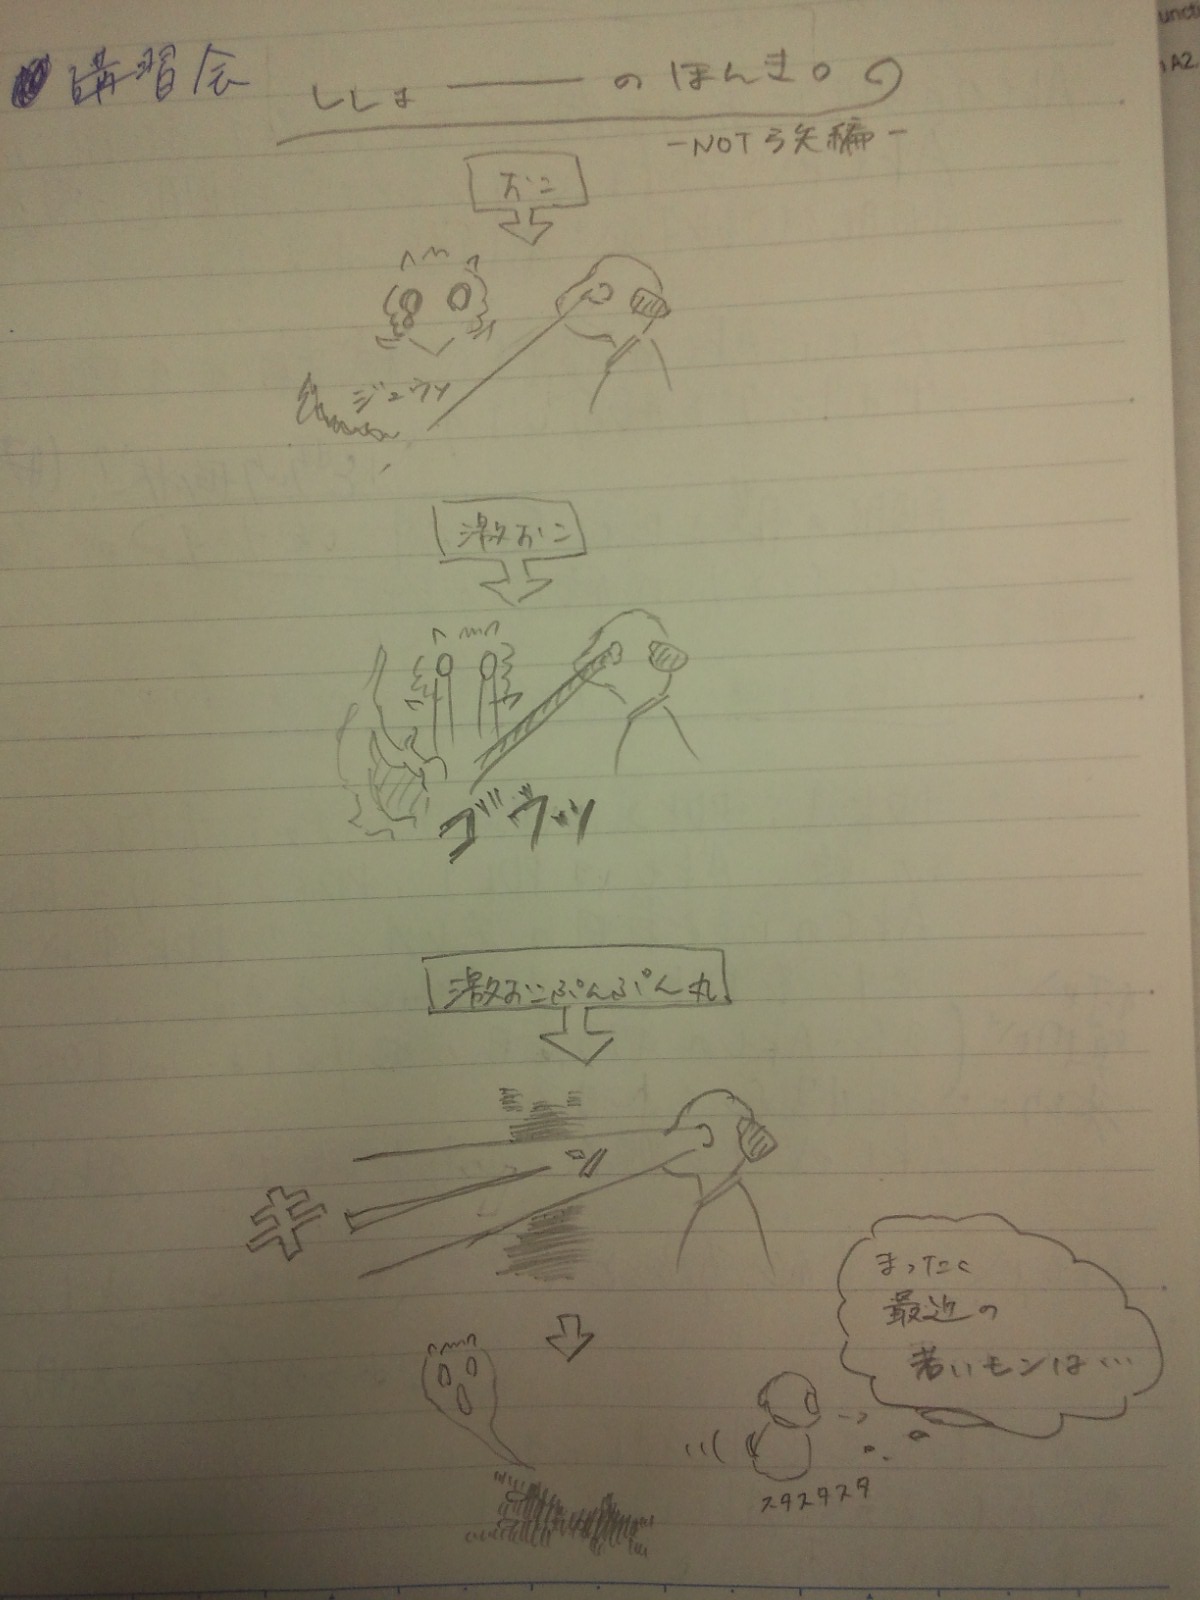 講習会
ししょ――のほんき。
-NOT 弓矢編-
おこ
ジュウッ
激おこ
ゴウッ
激おこぷんぷん丸
キ
まったく
最近の
若いモンは…
スタスタスタ